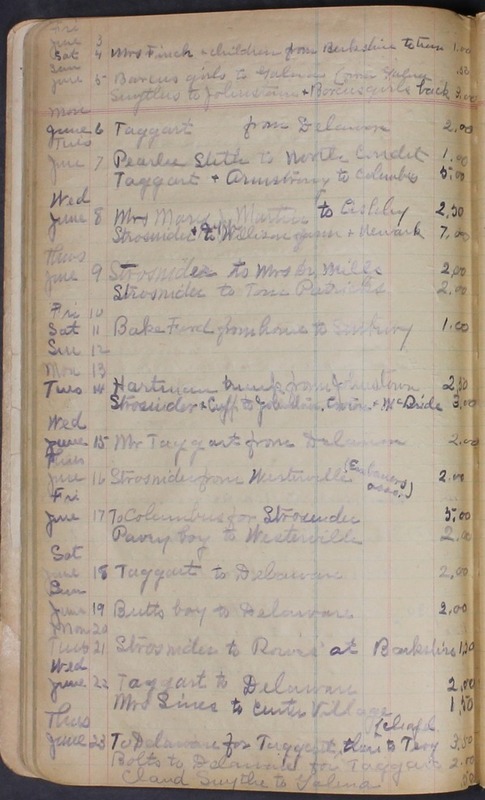 Fri
June 3
Sat 4 Mrs Finch + children from Berkshire to train 1.00
Sun
June 5 Barcus girls to Galena from Galena .50
Smythes to Johnstown + Barcus girls back 3.00
Mon
June 6 Taggart from Delaware 2.00
Tues
June 7 Pearlee Sleth to North Condit 1.00
Taggart + Armstrong to Columbus 5.00
Wed
June 8 Mrs Mary J. to Ashley 2.50
Strosnider + to + Newark 7.00
Thurs
June 9 Strosnider to Mrs Dr Mills 2.00
Strosnider to Tom Patricks 2.00
Fri 10
Sat 11 Bake Ford from home to Sunbury 1.00
Sun 12
Mon 13
Tues 14 Hartman trunk from Johnstown 2.50
Strosnider + Cuff to + McBride 3.00
Wed
June 15 Mr Taggart from Delaware 2.00
Thurs
June 16 Strosnider from Westerville 2.00
Fri
June 17 To Columbus for Strosnider 5.00
Pavey boy to Westerville 2.00
Sat
June 18 Taggart to Delaware 2.00
Sun
June 19 Butts boy to Delaware 2.00
Mon 20
Tues 21 Strosnider to at Berkshire 1.20
Wed
June 22 Taggart to Delaware 2.00
Mrs Sines to Center Village 1.50
Thurs
June 23 To Delaware for Taggart, then to Troy Chapel 3.50
Bolts to Delaware for Taggart 2.00
Claud Smythe to Galena .50